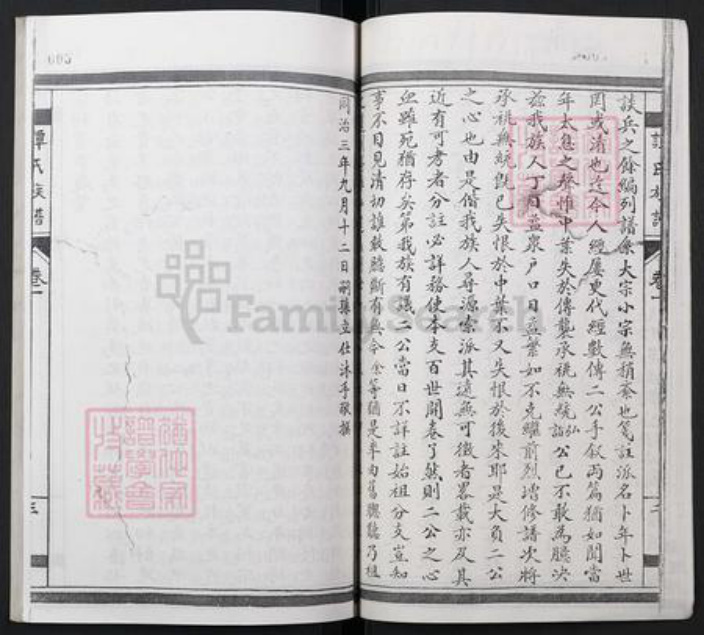 談兵之餘編列譜系大宗小宗無稍紊也箋註派名卜年卜世
罔或淆也迄今人經屢更代經數傳二公手敘两篇猶如聞當
年太息之聲惟中葉失於傳襲承祧無統弘誥公已不敢為臆决
茲我族人丁日益衆户口日益繁如不克繼前烈增修譜次將
承祧無統既已失恨於中葉不又失恨於後来耶是大負二公
之心也由是偕我族人尋源索派其遠無可徵者畧載亦及其
近有可考者分註必詳務使本支百世開卷了然則二公之心
血雖宛猶存矣第我族有議二公當日不詳註始祖分支豈知
事不目見清切誰敢臆斷有無今余等猶是率由舊聽乃祖
同治三年九月十二日嗣孫立仕沐手敬撰
譚氏族譜
卷一
三
譚氏族譜
卷一
二
FamilySearch
005